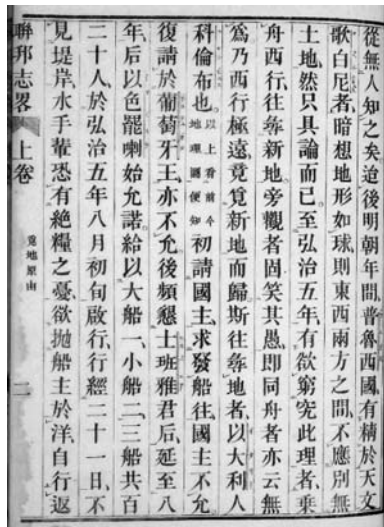 從無人知之矣迨後明朝年間普魯西國有精於天文
歌白尼者暗想地形如球則東西兩方之間不應別無
土地然只具論而已至弘治五年有欲窮究此理者乘
舟西行往尋新地旁觀者固笑其愚即同舟者亦云無
爲乃西行極遠竟覓新地而歸斯往尋地者以大利人
科倫布也以上看前今地理圖便知初請國主求發船往國主不允
復請於葡萄牙王亦不允後頻懇士班雅君后延至八
年后以色罷喇始允諾給以大船一小船二三船共百
二十人於弘治五年八月初旬啟行行經二十一日不
見堤岸水手輩恐有絕糧之憂欲拋船主於洋自行返
聨邦志畧 上卷 覓地原由 二